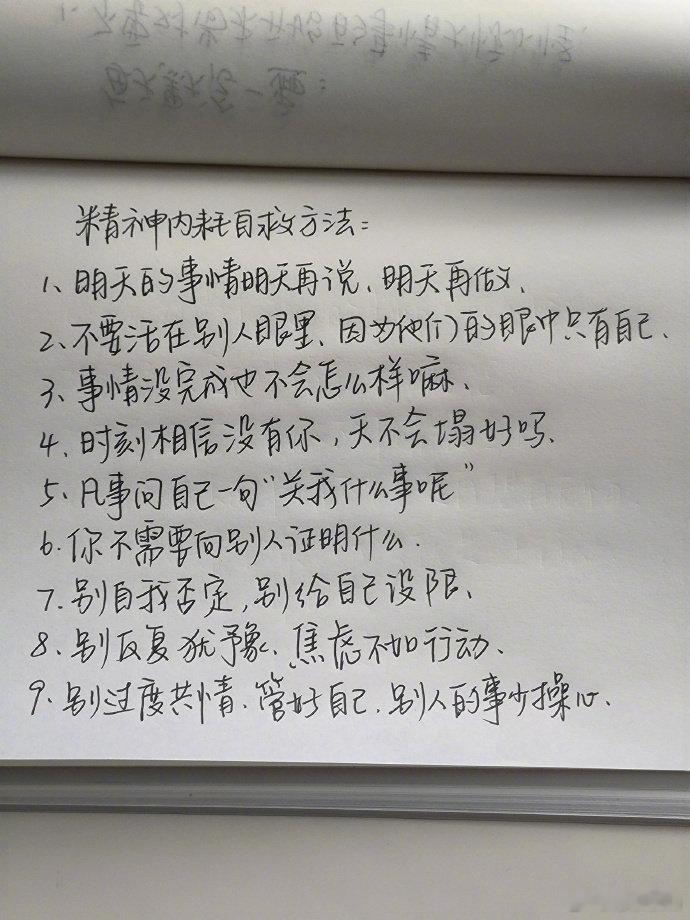 精神内耗自救方法:
1、明天的事情明天再说、明天再做、
2、不要活在别人眼里、因为他们的眼中只有自己、
3、事情没完成也不会怎么样嘛、
4、时刻相信没有你,天不会塌好吗、
5、凡事问自己一句“关我什么事呢”
6、你不需要向别人证明什么、
7、别自我否定,别给自己设限、
8、别反复犹豫、焦虑不如行动、
9、别过度共情、管好自己、别人的事少操心、